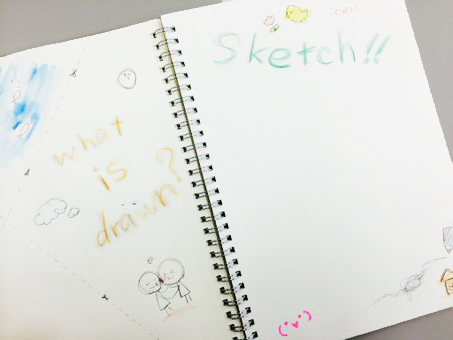 what
is
drawn?
Sketch!!